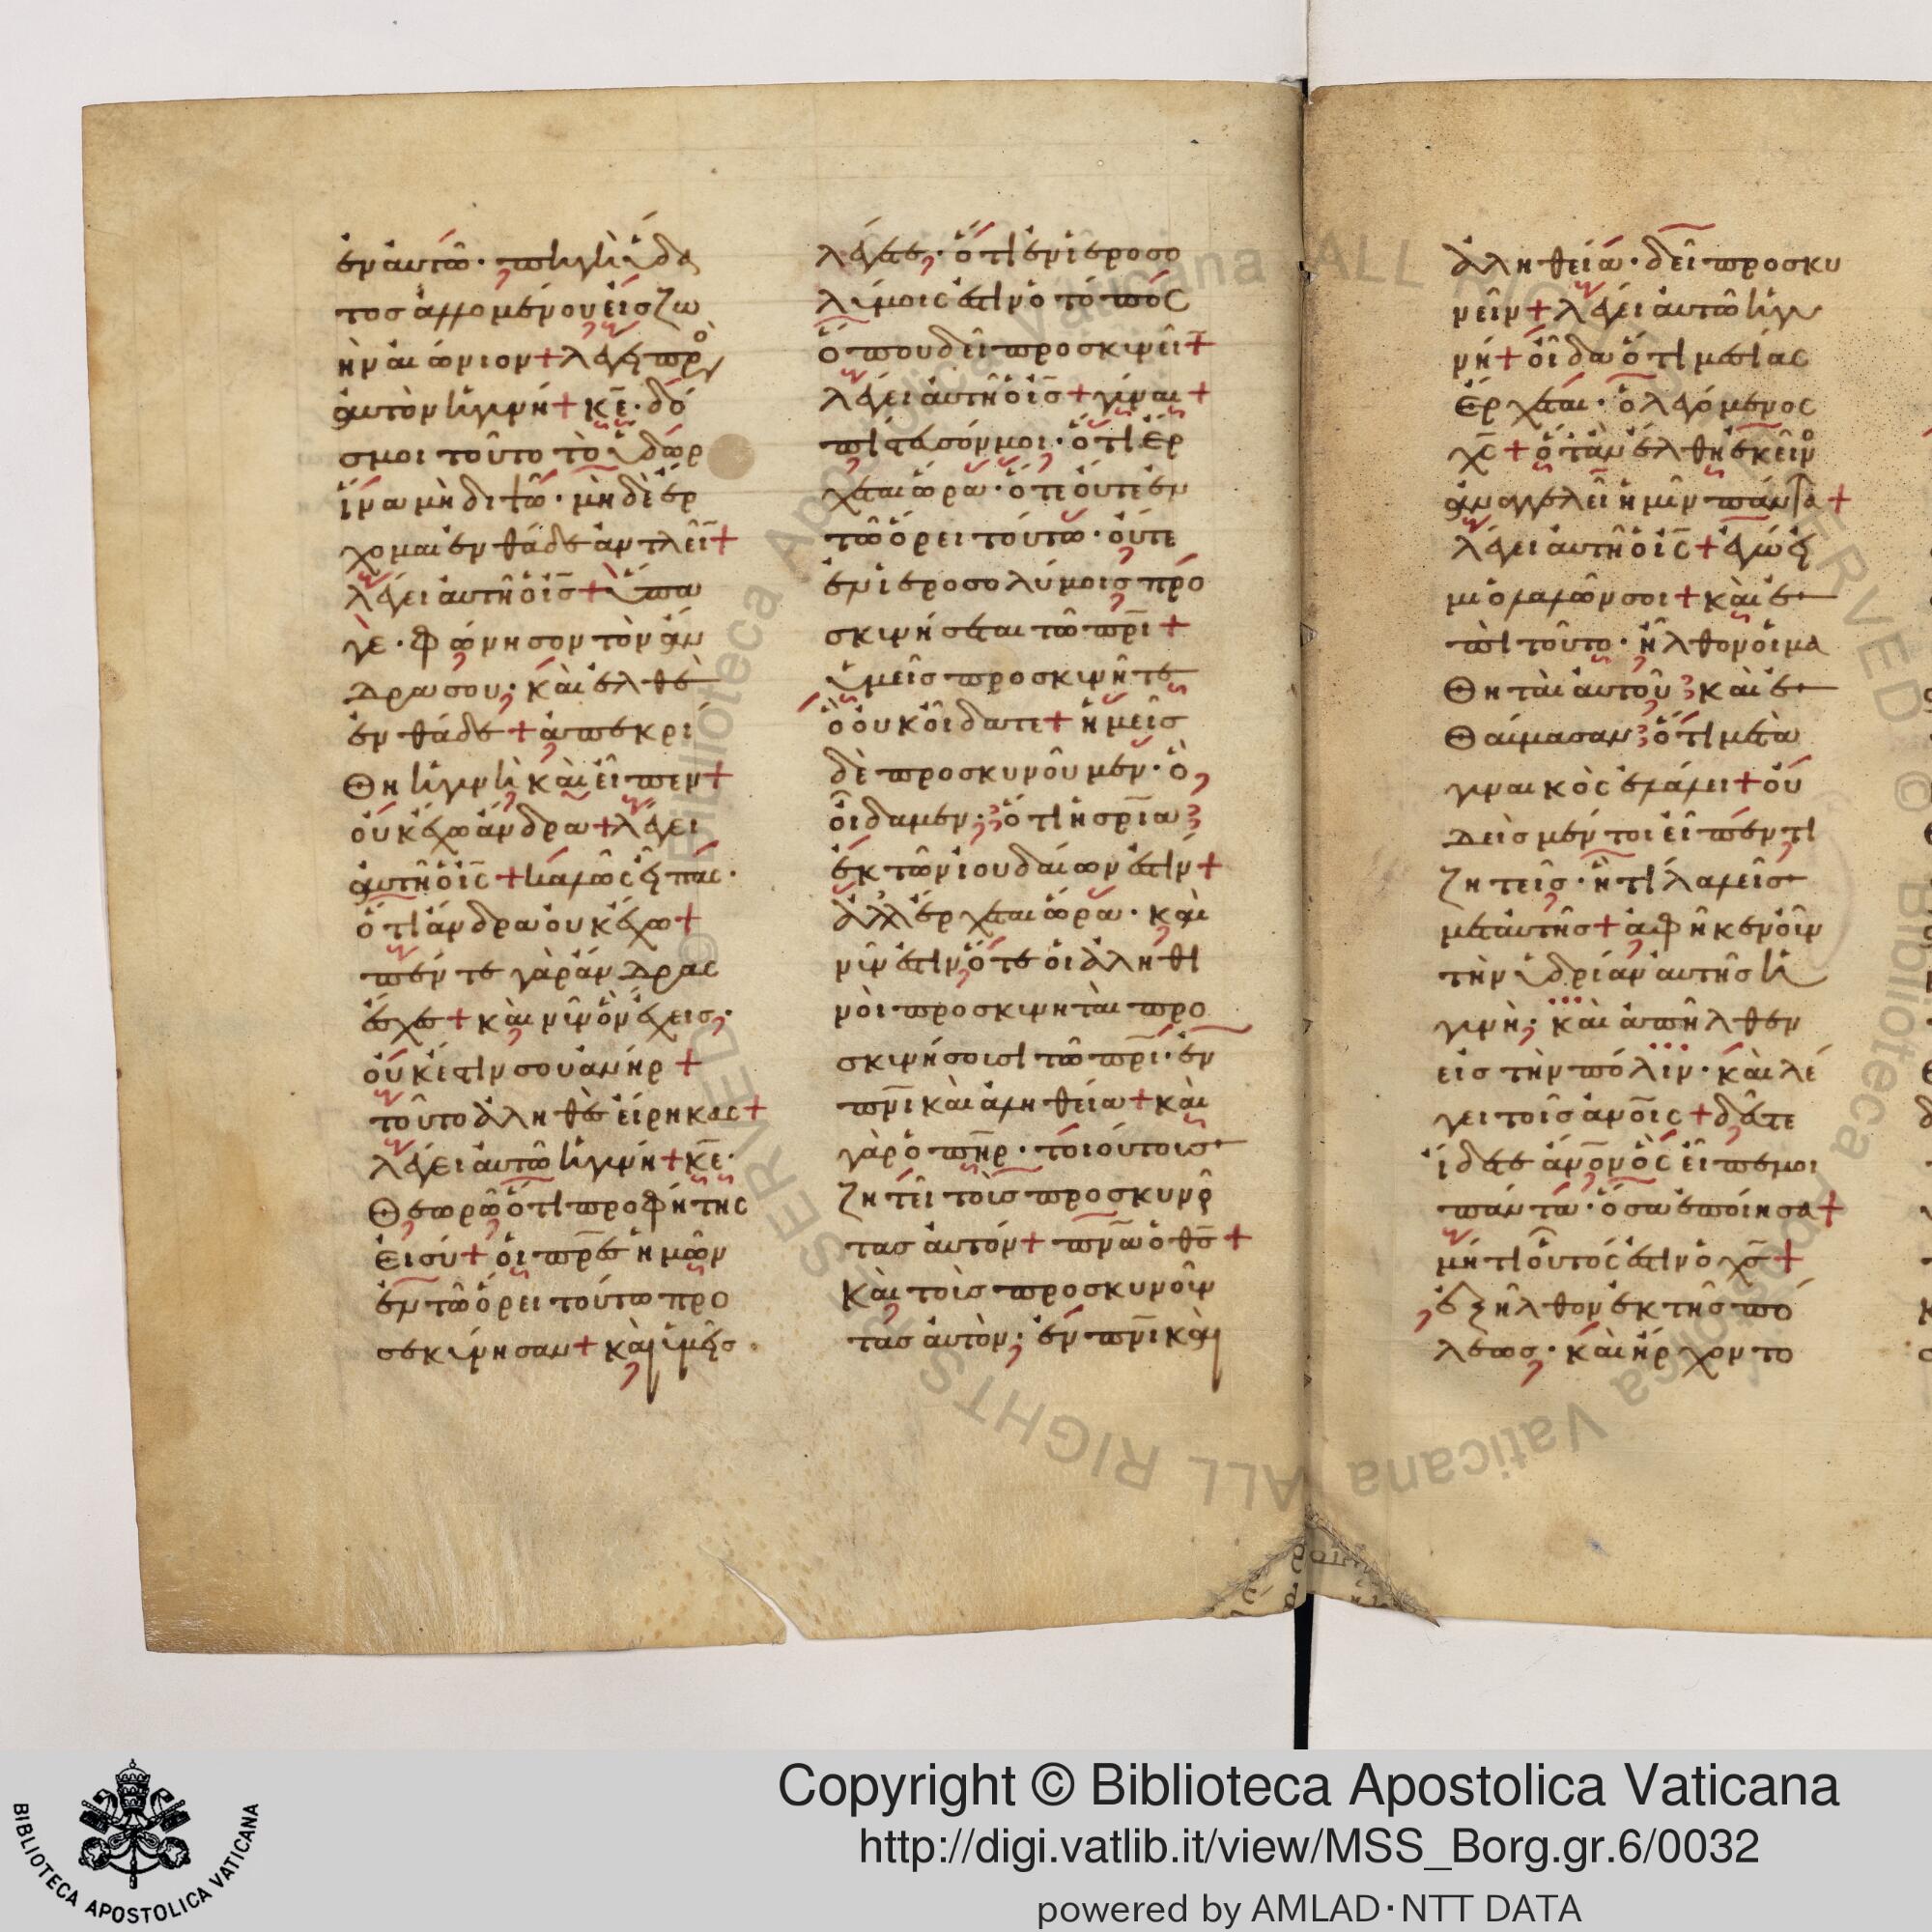 ἐν αὐτῶ· πηγὴ ὕδα
τος ἁλλομένου εἰς ζω
ὴν αἰώνιον + λέγει πρὸ
αὐτὸν ἡ γυνή + κ̅ε̅· δό
σμοι τοῦτο τὸ ὕδωρ
ἵνα μὴ διψῶ· μὴ δὲ ἔρ
χομαι ἐνθάδε ἀντλεῖ̅ +
λέγει αὐτῆ ὁ ι̅ς̅ + ὕπα
γε· φώνησον τὸν ἄν
δρα σου· καὶ ἐλθὲ
ἐνθάδε + ἀπεκρί
θη ἡ γυνὴ καὶ εἶπεν +
οὐκ ἔχω ἄνδρα + λέγει
αὐτῆ ὁ ι̅ς̅ + καλῶς εἶπας·
ὅτι ἄνδρα οὐκ ἔχω +
πέντε γὰρ ἄνδρας
ἔσχε + καὶ νῦν ὃν ἔχεις·
οὐκ ἔστιν σου ἀνήρ +
τοῦτο ἀληθὲ εἴρηκας +
λέγει αὐτῶ ἡ γυνή + κ̅ε̅·
θεωρῶ ὅτι προφήτης
εἶ σύ + οἱ π̅ρ̅ε̅ ἡμῶν
ἐν τῶ ὄρει τούτω προ
σεκύνησαν + καὶ ὑμεῖς
λέγετε· ὅτι ἐν ἱεροσο
λύμοις ἐστὶν ὁ τόπος
ὅπου δεῖ προσκυνεῖ̅ +
λέγει αὐτῆ ὁ ι̅ς̅ + γύναι +
πίστευσόν μοι· ὅτι ἔρ
χεται ὥρα· ὅτε οὔτε ἐν
τῶ ὄρει τούτω· οὔτε
ἐν ἱεροσολύμοις προ
σκυνήσεται τῶ π̅ρ̅ι̅ +
ὑμεῖς προσκυνῆτε
ὃ οὐκ οἴδατε + ἡμεῖς
δὲ προσκυνοῦμεν· ὃ
οἴδαμεν· ὅτι ἡ σ̅ρ̅ί̅α̅
ἐκ τῶν ιουδαίων ἐστίν +
ἀλλ' ἔρχεται ὥρα· καὶ
νῦν ἐστὶν ὅτε οἱ ἀληθι
νοὶ προσκυνηταὶ προ
σκυνήσουσι τῶ π̅ρ̅ι̅· ἐν
π̅ν̅ι̅ καὶ ἀληθεία + καὶ
γὰρ ὁ π̅η̅ρ̅· τοιούτοις
ζητεῖ τοὺς προσκυνοῦ
τας αὐτόν + π̅ν̅α̅ ὁ θ̅ς̅ +
καὶ τοὺς προσκυνοῦν
τας αὐτὸν· ἐν π̅ν̅ι̅ καὶ
ἀληθεία· δεῖ προσκυ
νεῖν + λέγει αὐτῶ ἡ γυ
νή + οἶδα ὅτι μεσίας
ἔρχεται· ὁ λεγόμενος
χ̅ς̅ + ὅταν ἔλθη ἐκεῖνο
ἀναγγελεῖ ἡμῖν πάντα +
λέγει αὐτῆ ὁ ι̅ς̅ + ἐγώ εἰ
μι ὁ λαλῶν σοι + καὶ ἐ
πὶ τοῦτο· ἦλθον οἱ μα
θηταὶ αὐτοῦ καὶ ἐ
θαύμασαν ὅτι μετὰ
γυναικὸς ἐλάλει + οὐ
δεὶς μέντοι εἶπέν τι
ζητεῖς· ἢ τί λαλεῖς
μετ' αὐτῆς + ἀφῆκεν οὖν
τὴν ὑδρίαν αὐτῆς ἡ
γυνὴ· καὶ ἀπῆλθεν
εἰς τὴν πόλιν· καὶ λέ
γει τοῖς ἀ̅ν̅ο̅ι̅ς̅ + δεῦτε
ἴδετε ἄ̅ν̅ο̅ν̅ ὃς εἶπέ μοι
πάντα· ὅσα ἐποίησα +
μήτι οὗτός ἐστιν ὁ χ̅ς̅ +
ἐξῆλθον ἐκ τῆς πό
λεως· καὶ ἤρχοντο
Copyright © Biblioteca Apostolica Vaticana
http://digi.vatlib.it/view/MSS_Borg.gr.6/0032
powered by AMLAD·NTT DATA
BIBLIOTECA APOSTOLICA VATICANA